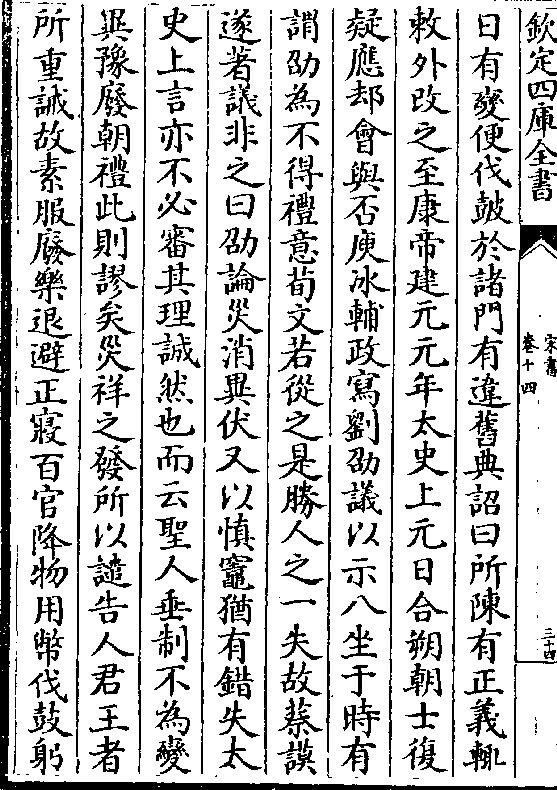 欽定四庫全書
宋書
卷十四
三十四
日有變便伐皷於諸門有違舊典詔曰所陳有正義輒
敕外改之至康帝建元元年太史上元日合朔朝士復
疑應却會與否庾冰輔政寫劉劭議以示八坐于時有
謂劭為不得禮意荀文若從之是勝人之一失故蔡謨
遂著議非之曰劭論災消異伏又以慎竈猶有錯失太
史上言亦不必審其理誠然也而云聖人垂制不為變
異豫廢朝禮此則謬矣災祥之發所以譴告人君王者
所重誡故素服廢樂退避正寢百官降物用幣伐鼓躬